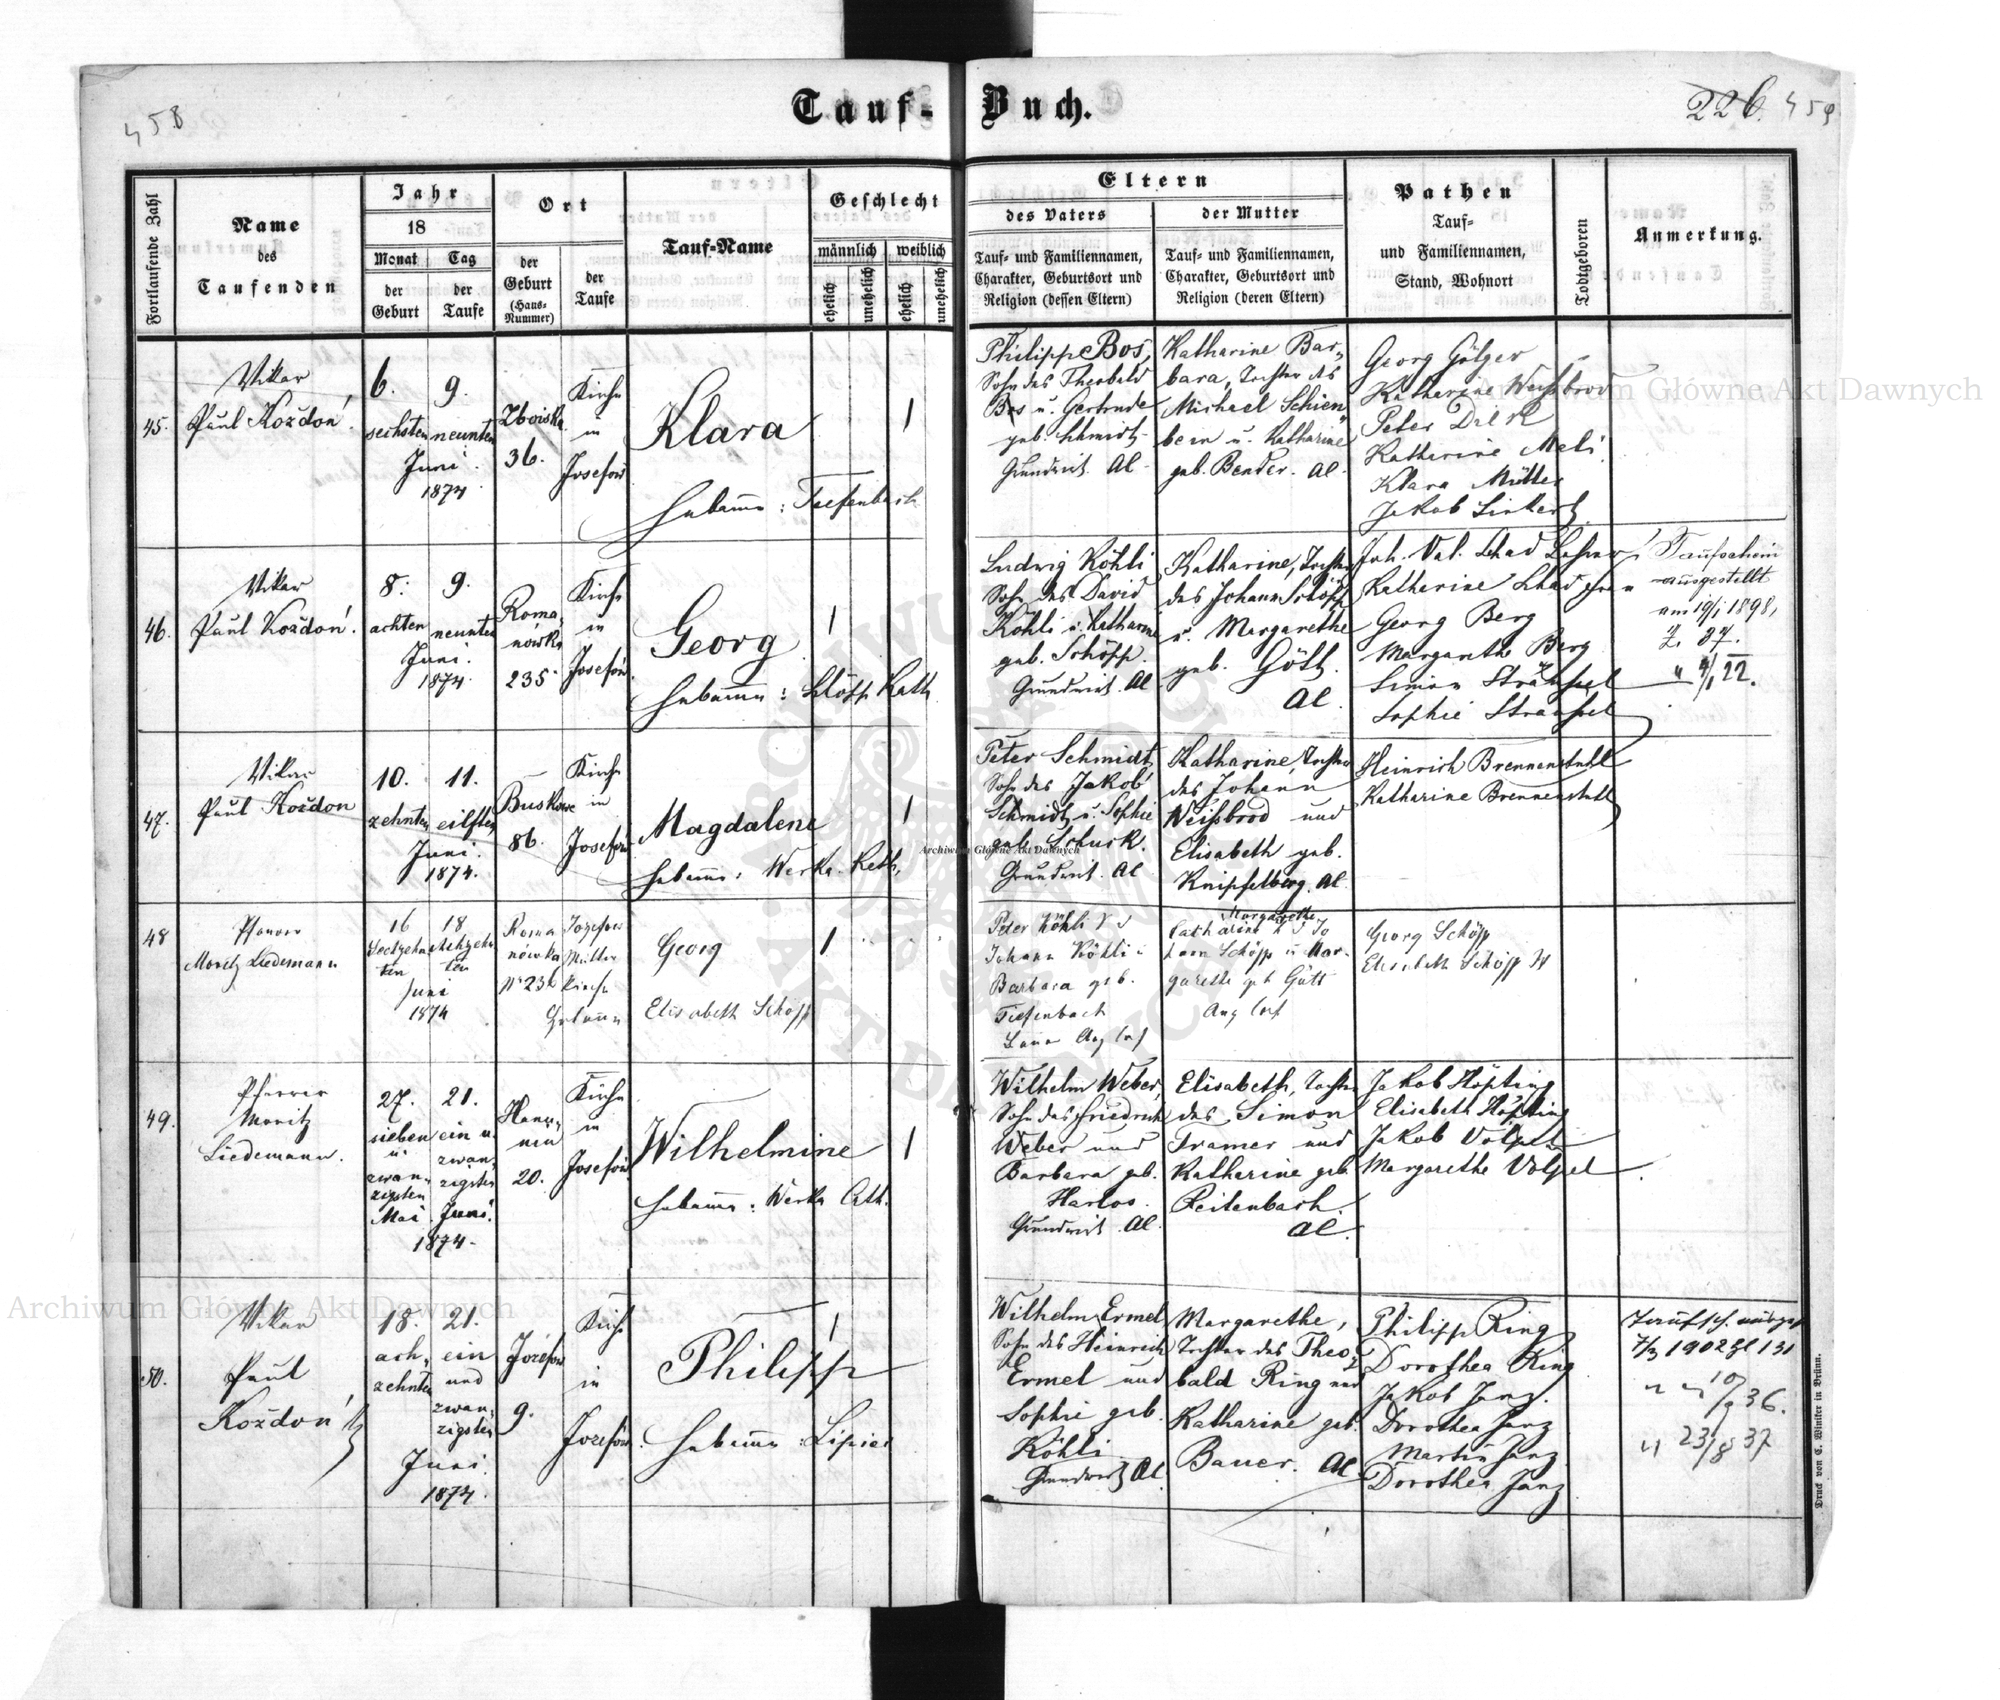 458
Tauf-Buch.
226. 459
Fortlaufende Zahl
Name
des
Taufenden
Jahr
18
Monat
Tag
der
Geburt
der
Taufe
Ort
der
Geburt
(Haus-
Nummer)
der
Taufe
Tauf-Name
Geschlecht
männlich
weiblich
ehelich
unehelich
ehelich
unehelich
Eltern
des Vaters
Tauf- und Familiennamen,
Charakter, Geburtsort und
Religion (dessen Eltern)
der Mutter
Tauf- und Familiennamen,
Charakter, Geburtsort und
Religion (deren Eltern)
Pathen
Tauf-
und Familiennamen,
Stand, Wohnort
Todtgeboren
Anmerkung.
45.
Vikar
Paul Koždoń.
6.
sechsten
9.
neunten
Juni.
1874.
Zboiska
36.
Kirche
in
Josefow
Klara
Hebamme: Tiefenbach
1
Philipp Bos,
Sohn des Theobald
Bos u. Gertrude
geb. Schmidt
Grundwirt. Al.
Katharine Bar-
bara, Tochter des
Michael Schien-
bein u. Katharine
geb. Bender. Al.
Georg Gölger
Katharine Weissbrod
Peter Dilk
Katharine Meli
Klara Müller
Jakob Linkert
46.
Vikar
Paul Koždoń.
8.
achten
9.
neunten
Juni.
1874.
Roma-
nówka
235
Kirche
in
Josefow
Georg
Hebamme: Schöpp Kath.
1
Ludwig Köhli
Sohn des David
Köhli u. Katharine
geb. Schöpp.
Grundwirt. Al
Katharine, Tochter
des Johann Schöpp
u. Margarethe
geb. Gött.
Al.
Joh. Val. Schad
Katharine Schad
Georg Berg
Margarethe Berg
Simon Strämpel
Sophie Strämpel
Taufschein
ausgestellt
am 19/1 1898,
Z. 37.
" 4/1 22.
47.
Vikar
Paul Koždon
10.
zehnten
11.
eilften
Juni.
1874.
Buskowe
86.
Kirche
in
Josefow
Magdalene
Hebamme: Werka Kath.
1
Peter Schmidt,
Sohn des Jakob
Schmidt u. Sophie
geb. Schuck.
Grundwirt. Al
Katharine, Tochter
des Johann
Weissbrod und
Elisabeth geb.
Knipfelberg. Al.
Heinrich Brennenstuhl
Katharine Brennenstuhl
48
Pfarrer
Moritz Liedemann
16
Sechzehn
ten
18
Achtzehn
ten
Juni
1874
Roma
nówka
Nº 236
Josefow
Mutter
Kirche
Georg
Hebamme Elisabeth Schöpp
1
Peter Köhli
Johann Köhli u
Barbara geb.
Tiefenbach
Aug Conf
Margarethe
Catharina T d Jo
hann Schöpp u Mar-
garethe geb Gött
Aug Conf
Georg Schöpp
Elisabeth Schöpp
49.
Pfarrer
Moritz
Liedemann.
27.
sieben
u.
zwan-
zigsten
Mai
21.
ein u.
zwan-
zigsten
Juni.
1874.
20.
Kirche
in
Josefow
Wilhelmine
Hebamme: Werka Cath.
1
Wilhelm Weber,
Sohn des Friedrich
Weber und
Barbara geb.
Harlos.
Grundwirt. Al.
Elisabeth, Tochter
des Simon
Kramer und
Katharine geb.
Reitenbach
Al.
Jakob Höpting
Elisabeth Höpting
Jakob Volpel
Margarethe Volpel
50.
Vikar
Paul
Koždoń
18.
ach-
zehnten
21.
ein
und
zwan-
zigsten
Juni.
1874.
Józefow
9.
Kirche
in
Josefow
Philipp
Hebamme: Lipici
1
Wilhelm Ermel
Sohn des Heinrich
Ermel und
Sophie geb.
Köhli
Grundwirt Al.
Margarethe,
Tochter des Theo-
bald Ring und
Katharine geb.
Bauer. Al.
Philipp Ring
Dorothea Ring
Jakob Janz.
Dorothea Janz
Martin Janz.
Dorothea Janz
7/3 1902 Zl 131
" " 10/9 36.
" 23/8 37
Druck von C. Winiker in Brünn.
Archiwum Główne Akt Dawnych
Archiwum Główne Akt Dawnych
Archiwum Główne Akt Dawnych